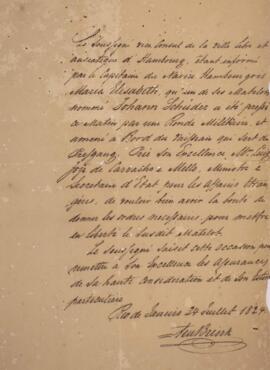 Le Soussigné vice Consul de la ville libre et
anséatique d'Hambourg, étant informé
par le Capitaine du Navire Hambourgeois
Maria Elisabeth, qu'un de ses Matelots
nommé Johann Schröder a été pressé
ce Matin par une Ronde Militaire et
amené à Bord du Vaisseau qui sert de
Presgang. Prie Son Excellence Mr. Luiz
José de Carvalho e Mello, Ministre &
Secrétaire d'État pour les affaires Etran-
gères, de vouloir bien avoir la bonté de
donner les ordres necessaires, pour mettre
en liberté le susdit Matelot.
Le soussigné saisit cette occasion pour
remettre à Son Excellence les assurances
de sa haute consideration et de son Estime
particulière
Rio de Janeiro 24 Juillet 1824